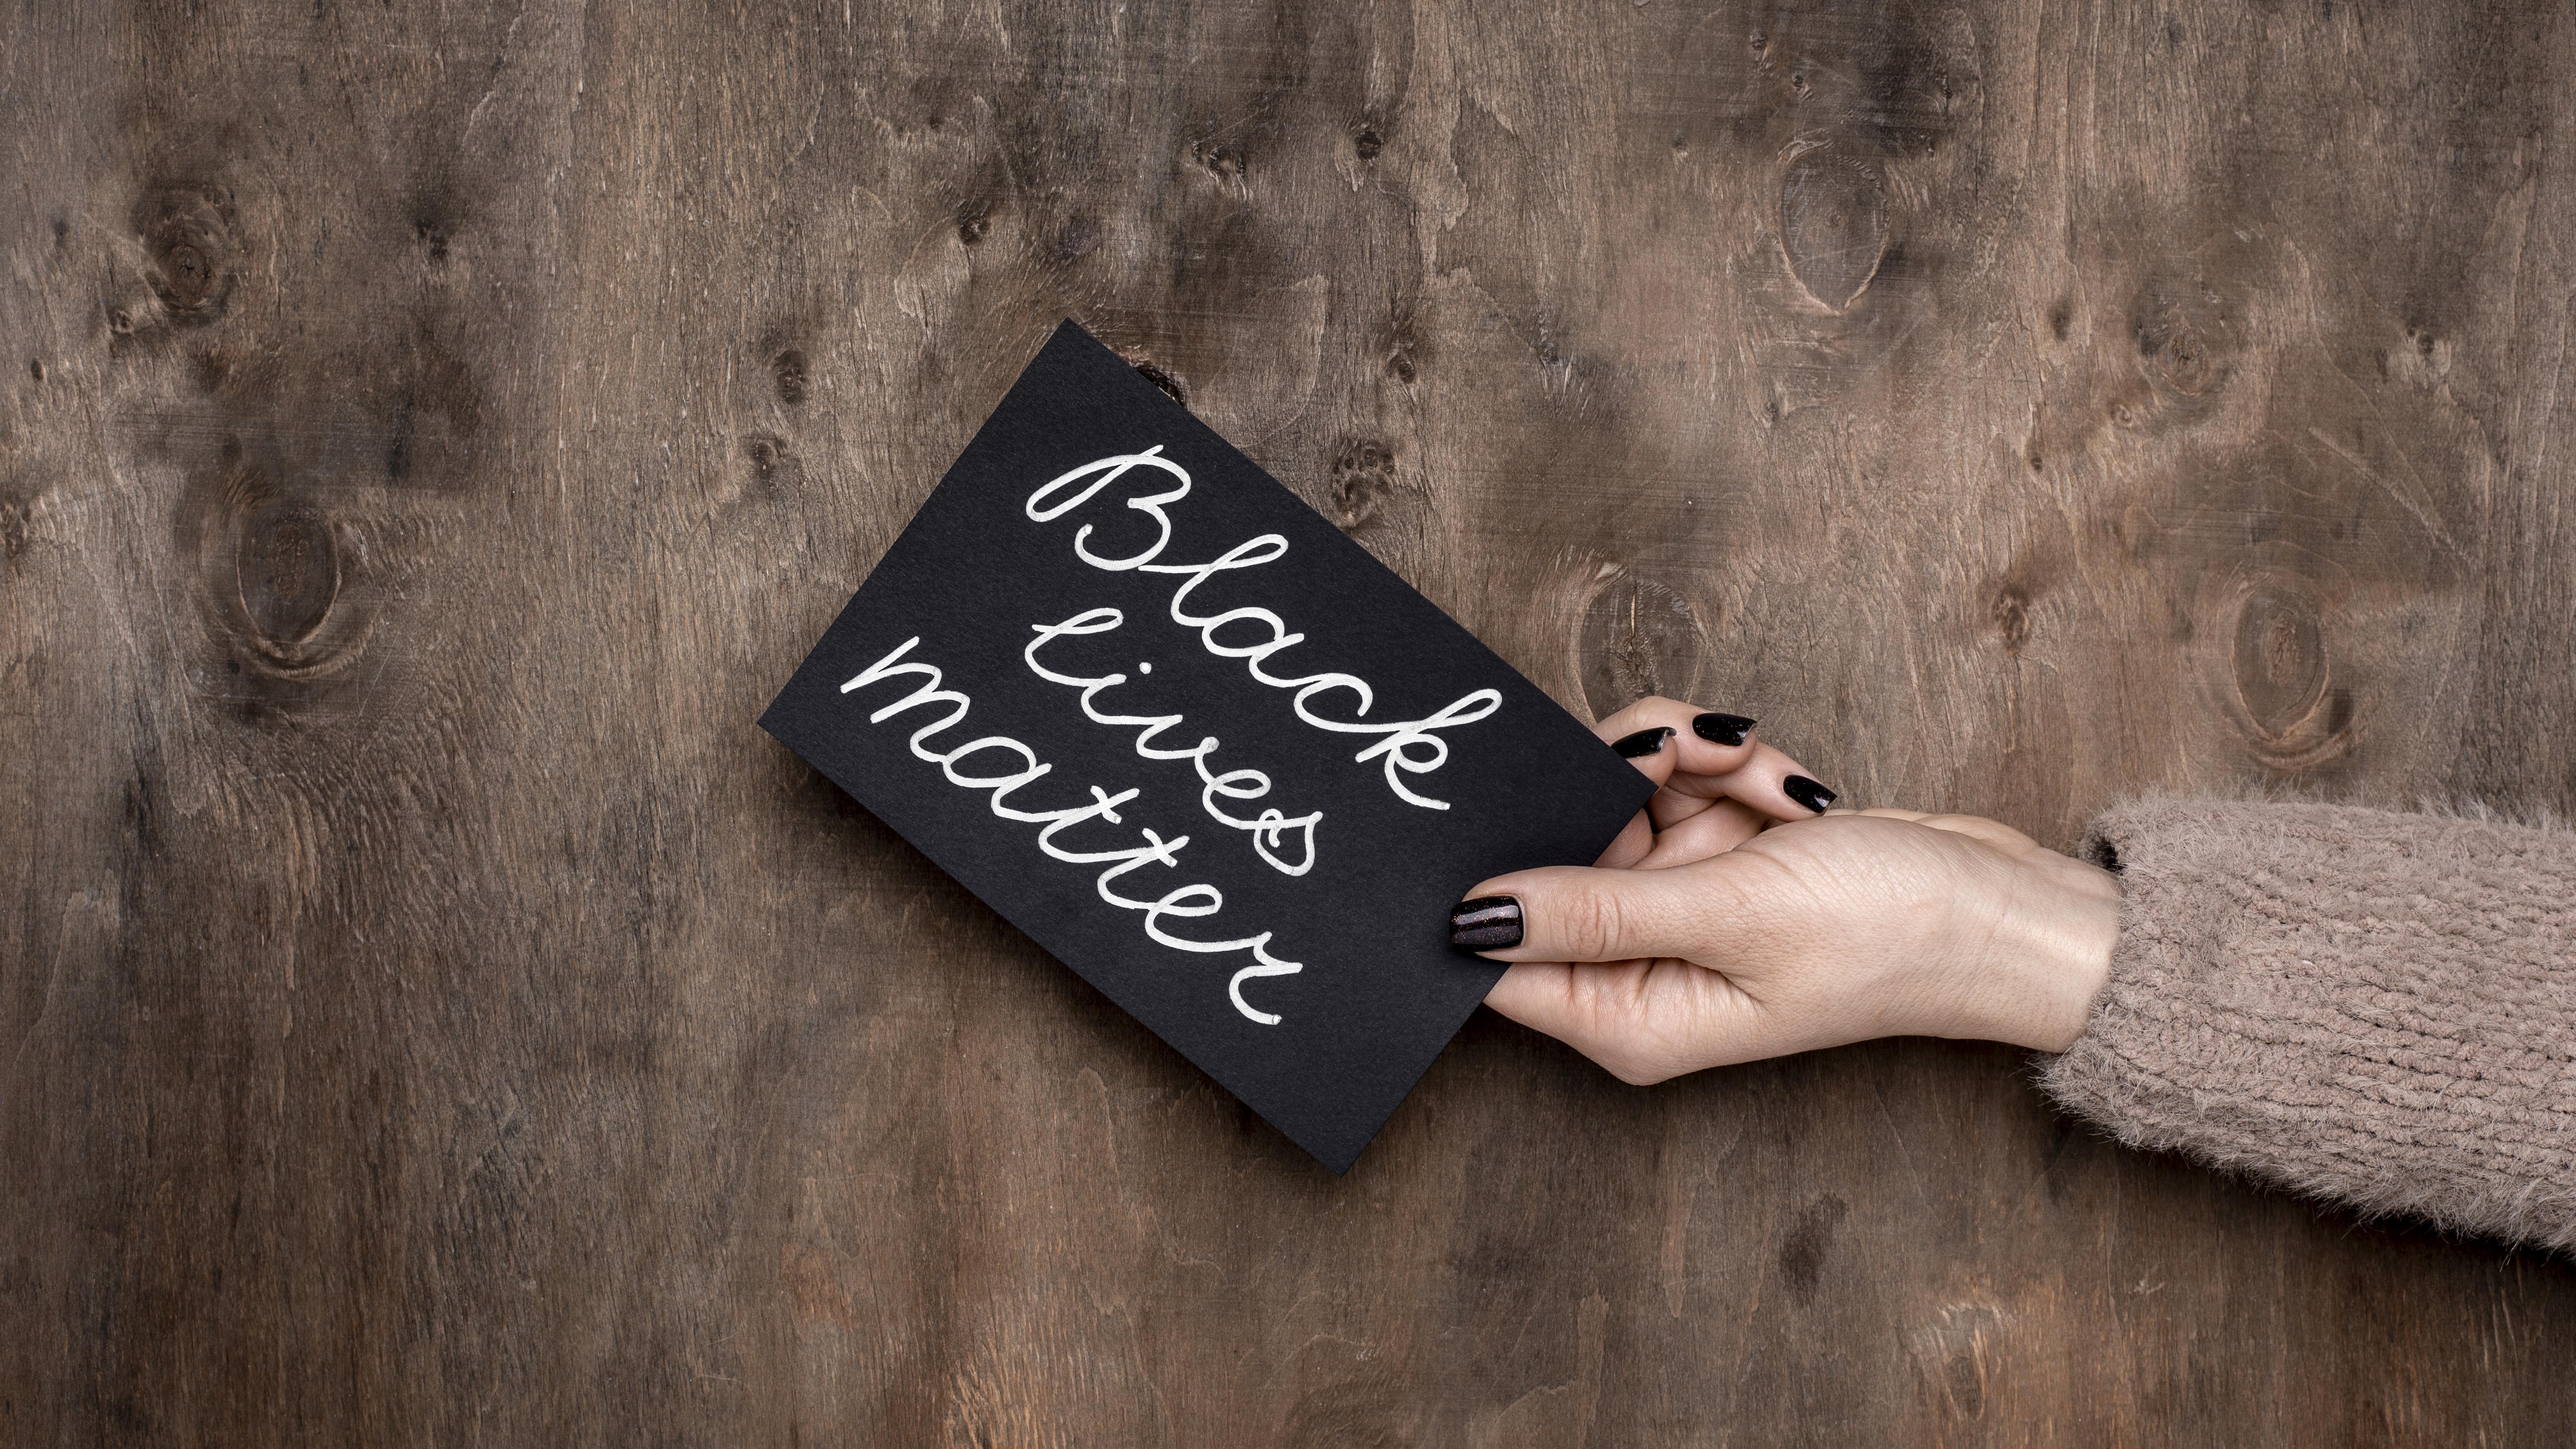 Black
lives
matter